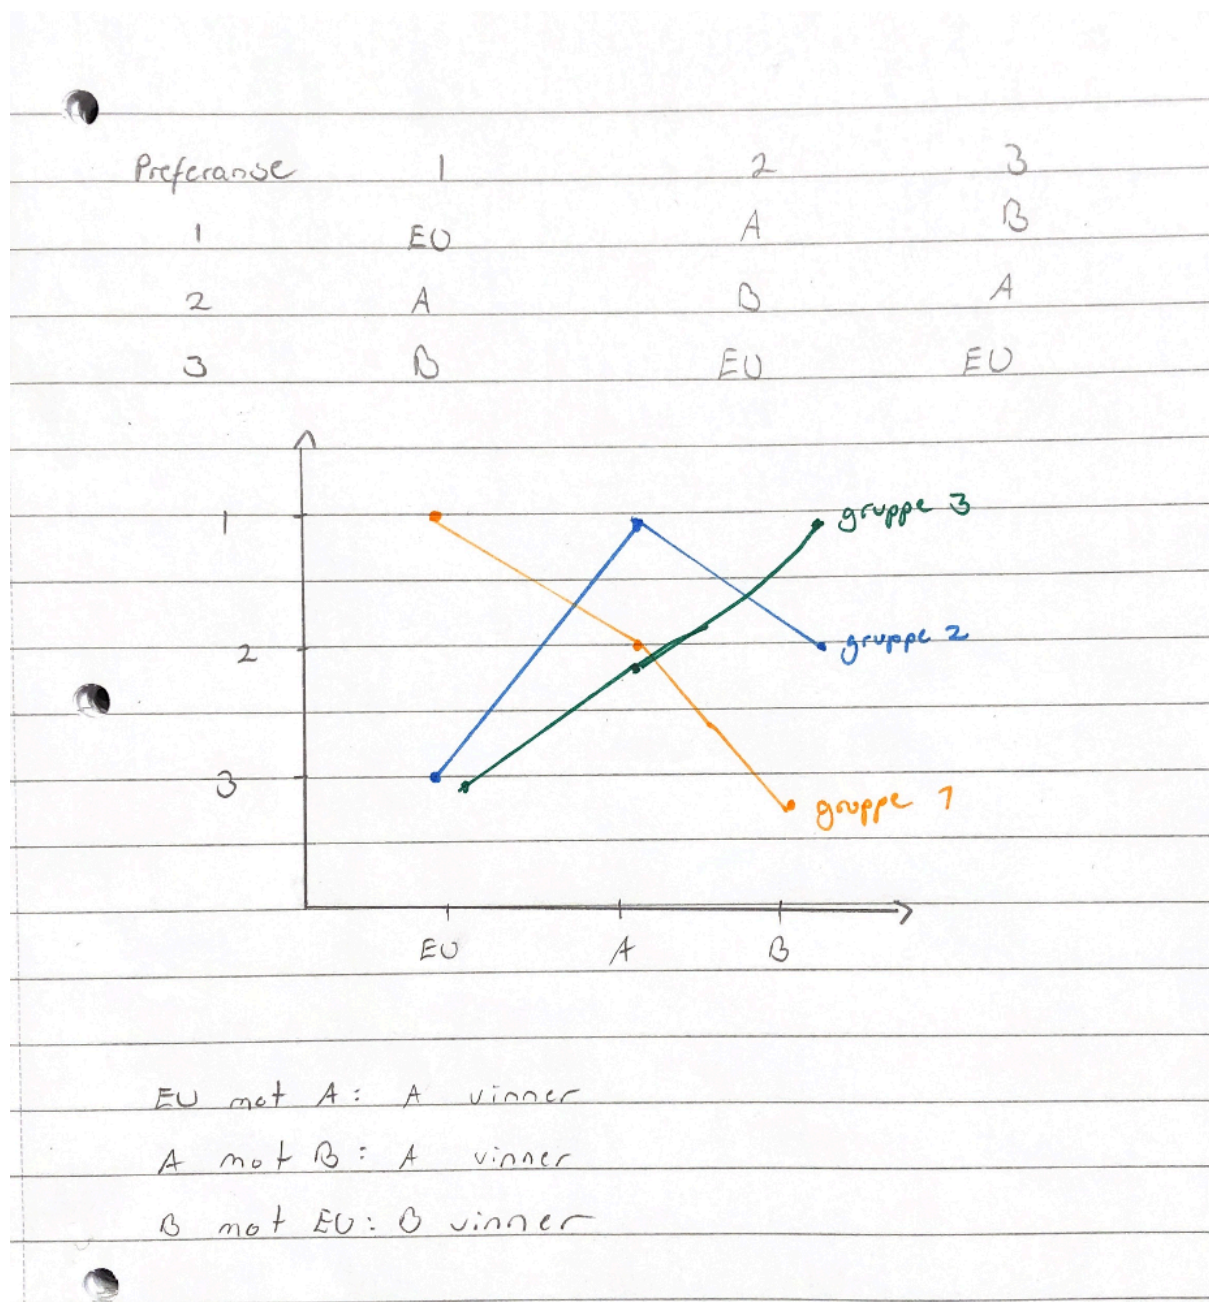 Preferanse 1 2 3
1 EU A B
2 A B A
3 B EU EU
1 gruppe 3
2 gruppe 2
3 gruppe 1
EU A B
EU mot A: A vinner
A mot B: A vinner
B mot EU: B vinner